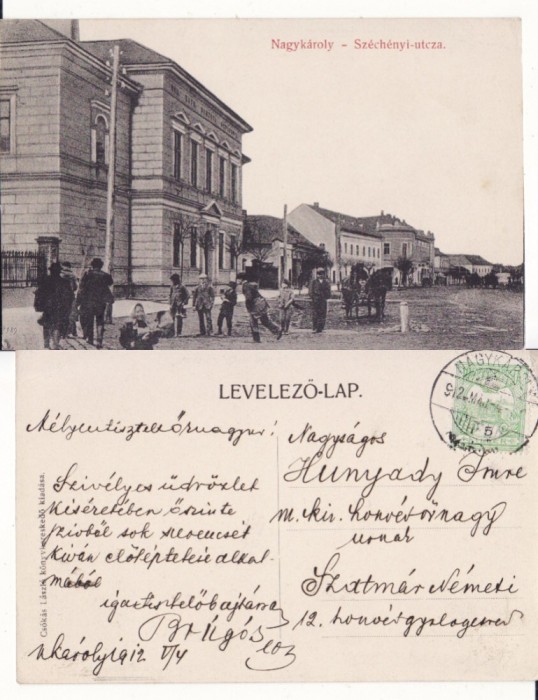 Nagykároly - Széchényi-utcza.
LEVELEZŐ-LAP.
Csókás László könyvkereskedő kiadása.
Mélyentisztelt őrnagyur!
Szivélyes üdvözlet
kiséretében őszinte
szivből sok szerencsét
kiván előléptetése alkal-
mából
igaztisztelő bajtársa
Brúgós
Nkároly 1912 V/4
Nagyságos
Hunyady Imre
m. kir. honvédőrnagy
urnak
Szatmár Németi
12. honvédgyalogezred
NAGYKÁROLY